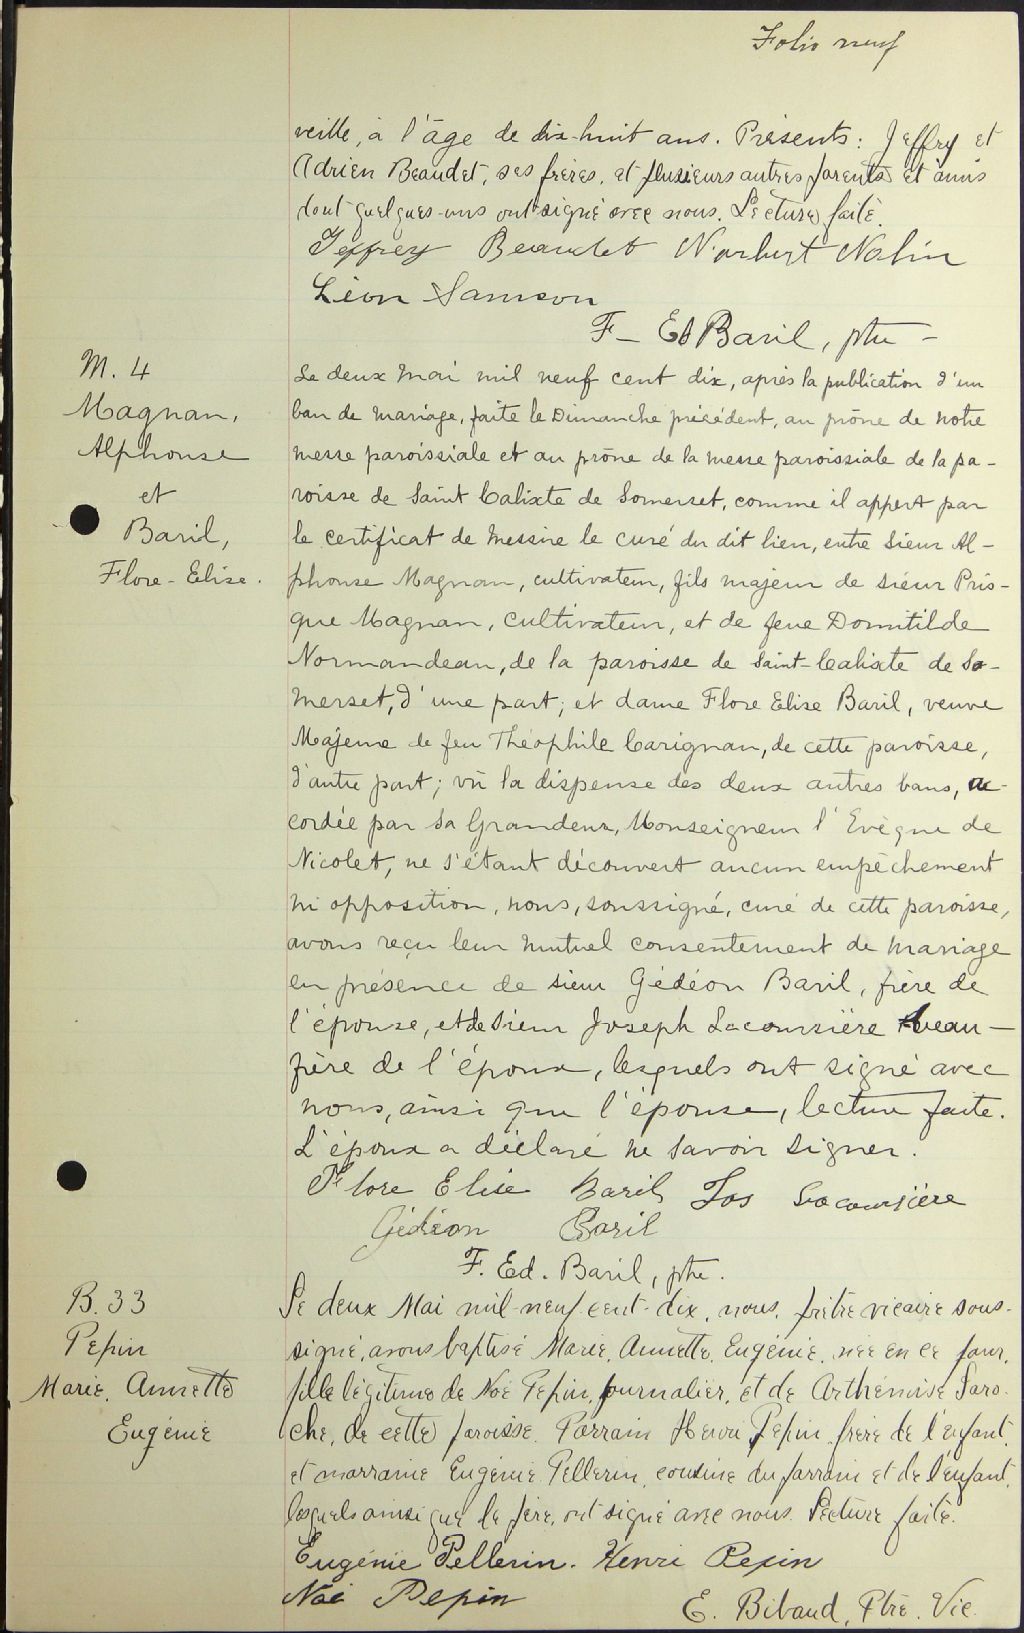 Folio neuf
veille, à l'âge de dix-huit ans. Présents: Jeffry et
Adrien Beaudet, ses frères, et plusieurs autres parents et amis
dont quelques-uns ont signé avec nous. Lecture faite.
Jeffrey Beaudet Norbert Nolin
Léon Samson
F- Ed Baril, ptre -
M. 4
Magnan,
Alphonse
et
Baril,
Flore-Elise.
Le deux mai mil neuf cent dix, après la publication d'un
ban de mariage, faite le Dimanche précédent, au prône de notre
messe paroissiale et au prône de la messe paroissiale de la pa-
roisse de Saint Calixte de Somerset, comme il appert par
le certificat de Messire le curé du dit lieu, entre sieur Al-
phonse Magnan, cultivateur, fils majeur de sieur Pris-
que Magnan, cultivateur, et de feue Domitilde
Normandeau, de la paroisse de Saint-Calixte de So-
merset, d'une part; et dame Flore Elise Baril, veuve
Majeure de feu Théophile Carignan, de cette paroisse,
d'autre part; vû la dispense des deux autres bans, ac-
cordée par Sa Grandeur, Monseigneur l'Evêque de
Nicolet, ne s'étant découvert aucun empêchement
ni opposition, nous, soussigné, curé de cette paroisse,
avons reçu leur mutuel consentement de mariage
en présence de sieur Gédéon Baril, frère de
l'épouse, et de Sieur Joseph Lacoursière beau-
frère de l'époux, lesquels ont signé avec
nous, ainsi que l'épouse, lecture faite.
L'époux a déclaré ne savoir signer.
Flore Elise Baril Jos Lacoursière
Gédéon Baril
F. Ed. Baril, ptre.
B. 33
Pepin
Marie, Annette
Eugénie
Le deux Mai mil-neuf-cent-dix, nous, prêtre vicaire sous-
signé, avons baptisé Marie, Annette, Eugénie, née en ce jour,
fille légitime de Noé Pepin, journalier, et de Arthémise Laro-
che, de cette paroisse. Parrain Henri Pepin, frère de l'enfant,
et marraine Eugénie Pellerin, cousine du parrain et de l'enfant,
lesquels ainsi que le père, ont signé avec nous. Lecture faite.
Eugénie Pellerin. Henri Pepin
Noé Pepin
E. Bibaud, Ptre. Vic.